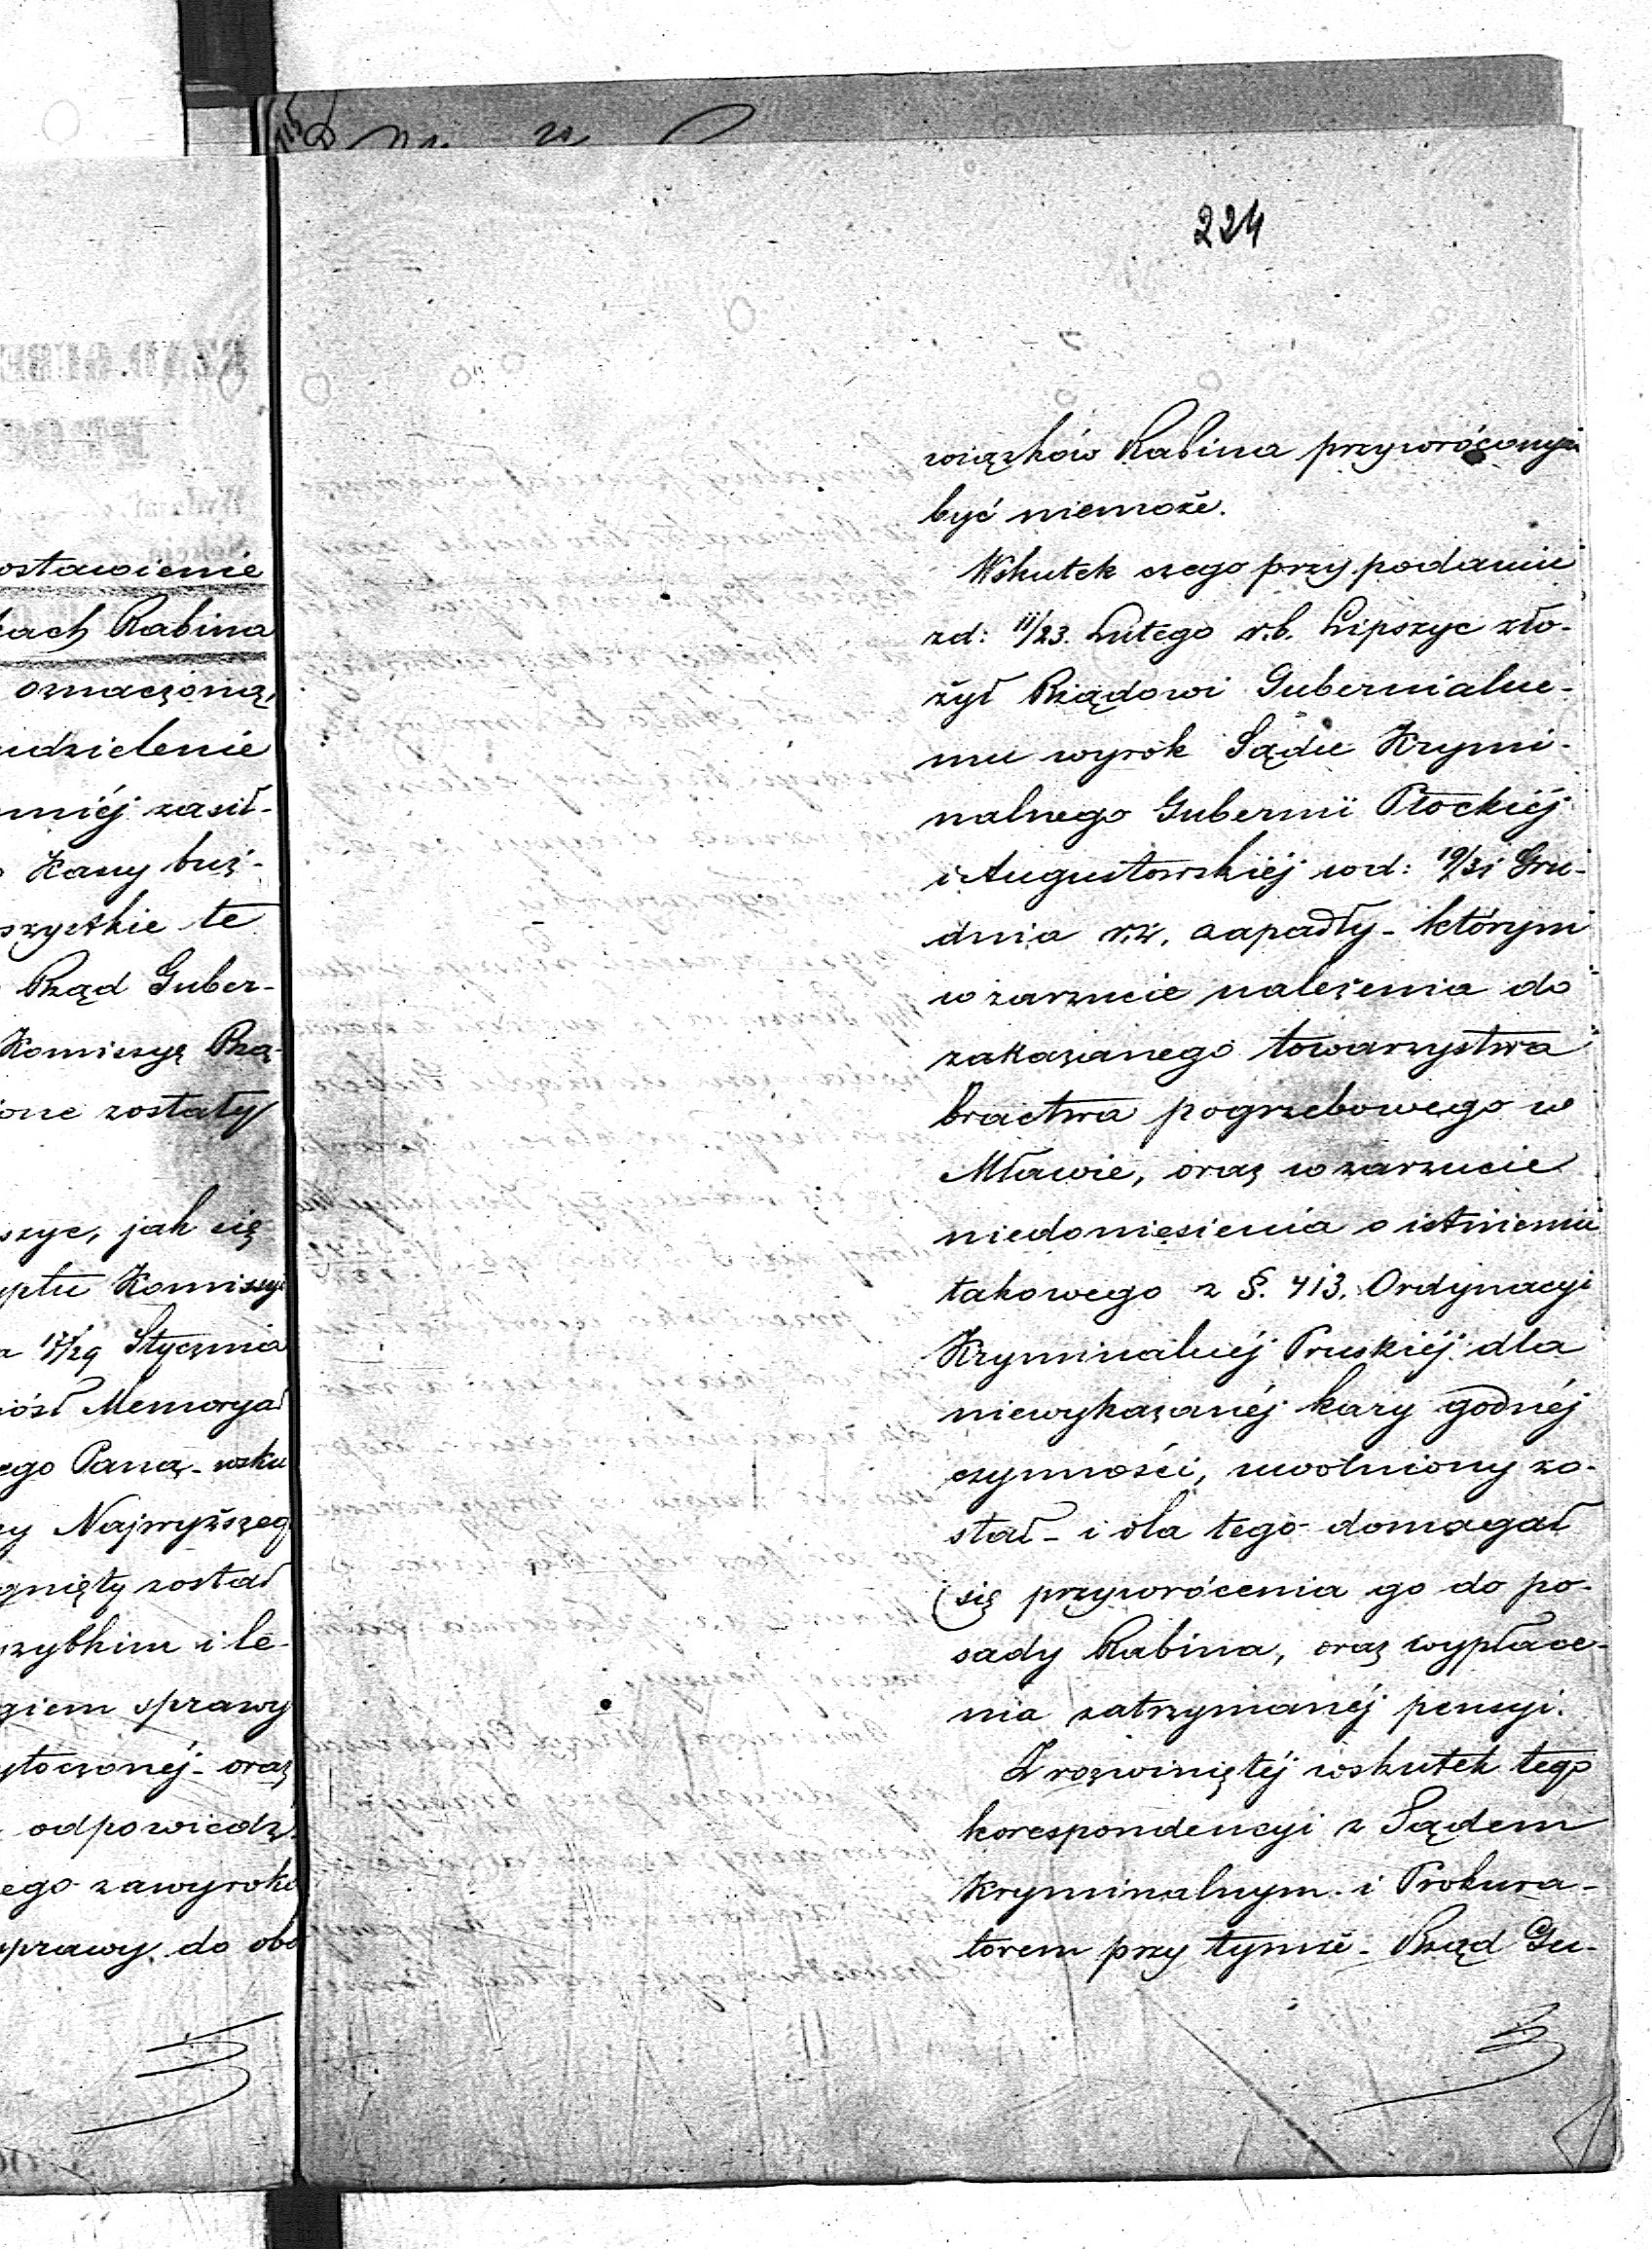 224
ostawienie
kach Rabina
oznaczoną,
udzielenie
mniéj zasił-
Kassy buż-
szystkie te
Rząd Guber-
Komissyę Rzą-
ione zostały
szyc, jak się
yptu Komissyi
17/29 Stycznia
iósł Memoryał
ego Pana, - wsku
cy Najwyższeg
gnięty został
szybkim i le-
giem sprawy
ytoczonéj - oraz
odpowiedź.
ego zawyroko
sprawy do obo
wiązków Rabina przywróconym
być niemoże.
Wskutek czego przy podaniu
zd: 11/23. Lutego r.b. Lipszyc zło-
żył Rządowi Gubernialne-
mu wyrok Sądu Krymi-
nalnego Gubernii Płockiéj
i Augustowskiéj wd: 19/31 Gru-
dnia r.z. zapadły - którym
w zarzucie należenia do
zakazanego towarzystwa
bractwa pogrzebowego w
Mławie, oraz w zarzucie
niedoniesienia o istnieniu
takowego z §. 413. Ordynacyi
Kryminalnéj Pruskiéj dla
niewykazanéj kary godnéj
czynności, uwolniony zo-
stał - i dla tego domagał
się przywrócenia go do po-
sady Rabina, oraz wypłace-
nia zatrzymanéj pensyi.
Z rozwiniętéj wskutek tego
korespondencyi z Sądem
Kryminalnym i Prokura-
torem przy tymże - Rząd Gu-